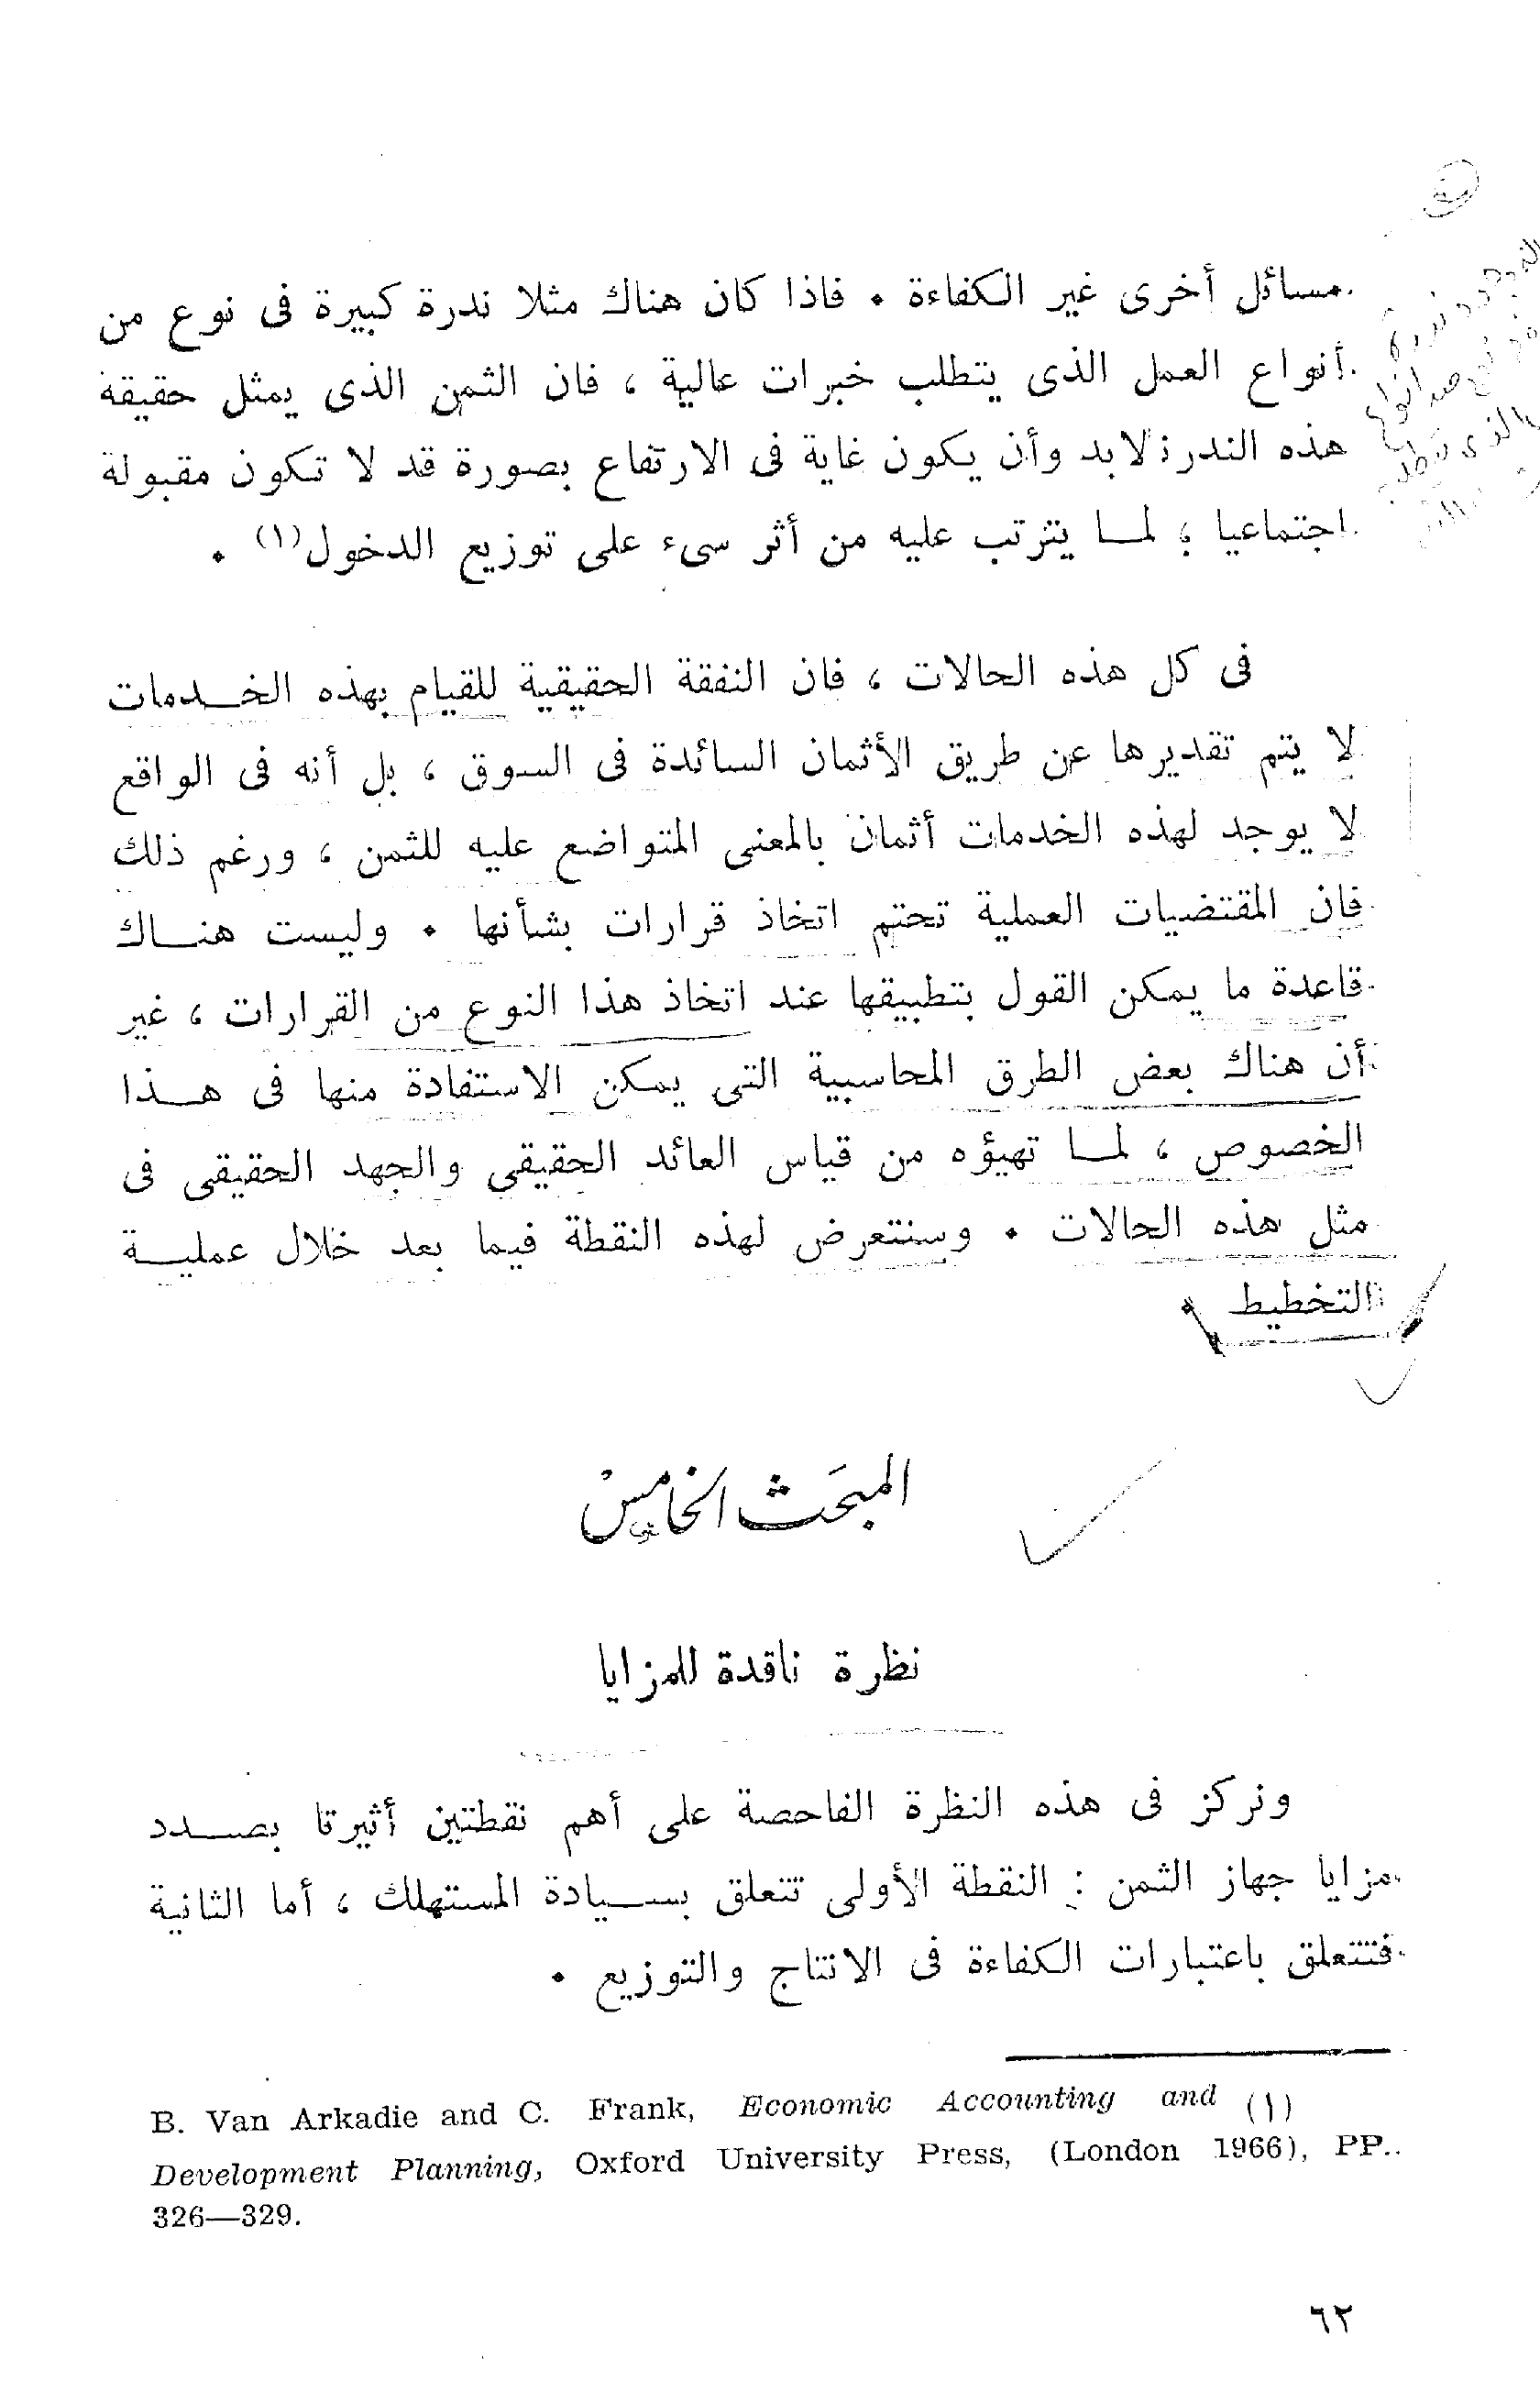 مسائل أخرى غير الكفاءة . فاذا كان هناك مثلا ندرة كبيرة فى نوع من
أنواع العمل الذى يتطلب خبرات عالية ، فان الثمن الذى يمثل حقيقة
هذه الندرة لابد وأن يكون غاية فى الارتفاع بصورة قد لا تكون مقبولة
اجتماعيا ؛ لمــا يترتب عليه من أثر سىء على توزيع الدخول(١) .
فى كل هذه الحالات ، فان النفقة الحقيقية للقيام بهذه الخــدمات
لا يتم تقديرها عن طريق الأثمان السائدة فى السوق ، بل أنه فى الواقع
لا يوجد لهذه الخدمات أثمان بالمعنى المتواضع عليه للثمن ، ورغم ذلك
فان المقتضيات العملية تحتم اتخاذ قرارات بشأنها . وليست هنــاك
قاعدة ما يمكن القول بتطبيقها عند اتخاذ هذا النوع من القرارات ، غير
أن هناك بعض الطرق المحاسبية التى يمكن الاستفادة منها فى هــذا
الخصوص ، لمــا تهيؤه من قياس العائد الحقيقى والجهد الحقيقى فى
مثل هذه الحالات . وسنتعرض لهذه النقطة فيما بعد خلال عمليــة
التخطيط .
المبحث الخامس
نظرة ناقدة للمزايا
ونركز فى هذه النظرة الفاحصة على أهم نقطتين أثيرتا بصــدد
مزايا جهاز الثمن : النقطة الأولى تتعلق بســيادة المستهلك ، أما الثانية
فتتعلق باعتبارات الكفاءة فى الانتاج والتوزيع .
B. Van Arkadie and C. Frank, Economic Accounting and (١)
Development Planning, Oxford University Press, (London 1966), PP.
326—329.
٦٢